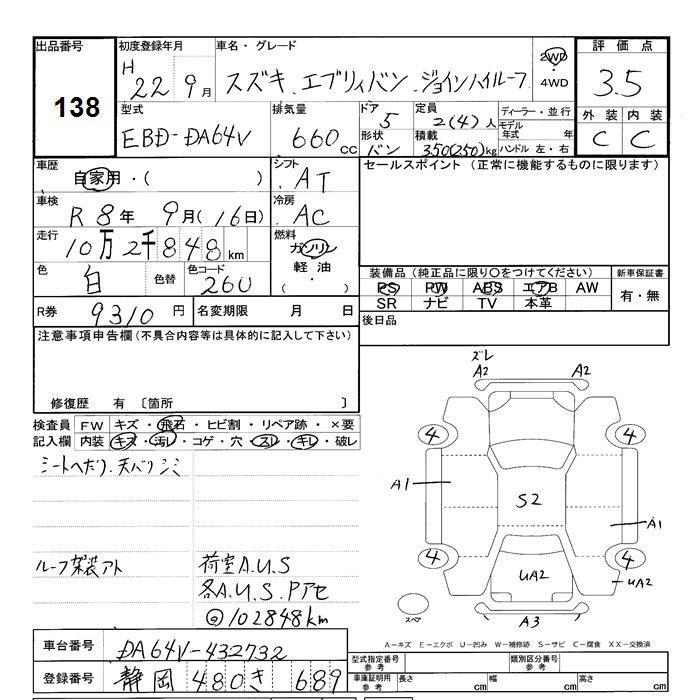 出品番号 138
初度登録年月 H 22年9月
車名・グレード スズキ エブリィバン ジョインハイルーフ
2WD・4WD
評価点 3.5
外装 C 内装 C
型式 EBD-DA64V
排気量 660cc
ドア 5
形状 バン
定員 2(4)人
積載 350(250)kg
ディーラー・並行
モデル年式 年
ハンドル 左・右
車歴 自家用・( )
シフト AT
セールスポイント (正常に機能するものに限ります)
車検 R 8年 9月(16日)
冷房 AC
走行 10万2千848km
燃料 ガソリン・軽油・( )
色 白 色替 色コード 26U
装備品(純正品に限り〇をつけてください)
PS PW ABS エアB AW
SR ナビ TV 本革
新車保証書 有・無
R券 9310円 名変期限 月 日
後日品
注意事項申告欄(不具合内容等は具体的に記入して下さい)
修復歴 有〔箇所 〕
検査員記入欄
FW キズ・飛石・ヒビ割・リペア跡・×要
内装 キズ・汚レ・コゲ・穴・スレ・キレ・破レ
シートへたり、天バリシミ
ルーフ架装アト
荷室A.U.S
各A.U.S.Pアセ
@102848km
ズレ
A2 A2
4 4
A1 S2 A1
4 4
UA2 UA2
スペア A3
A-キズ E-エクボ U-凹み W-補修跡 S-サビ C-腐食 XX-交換済
車台番号 DA64V-432732
登録番号 静岡 480 き 689
型式指定番号 参考 類別区分番号 参考
車庫証明用 参考 長さ cm 幅 cm 高さ cm